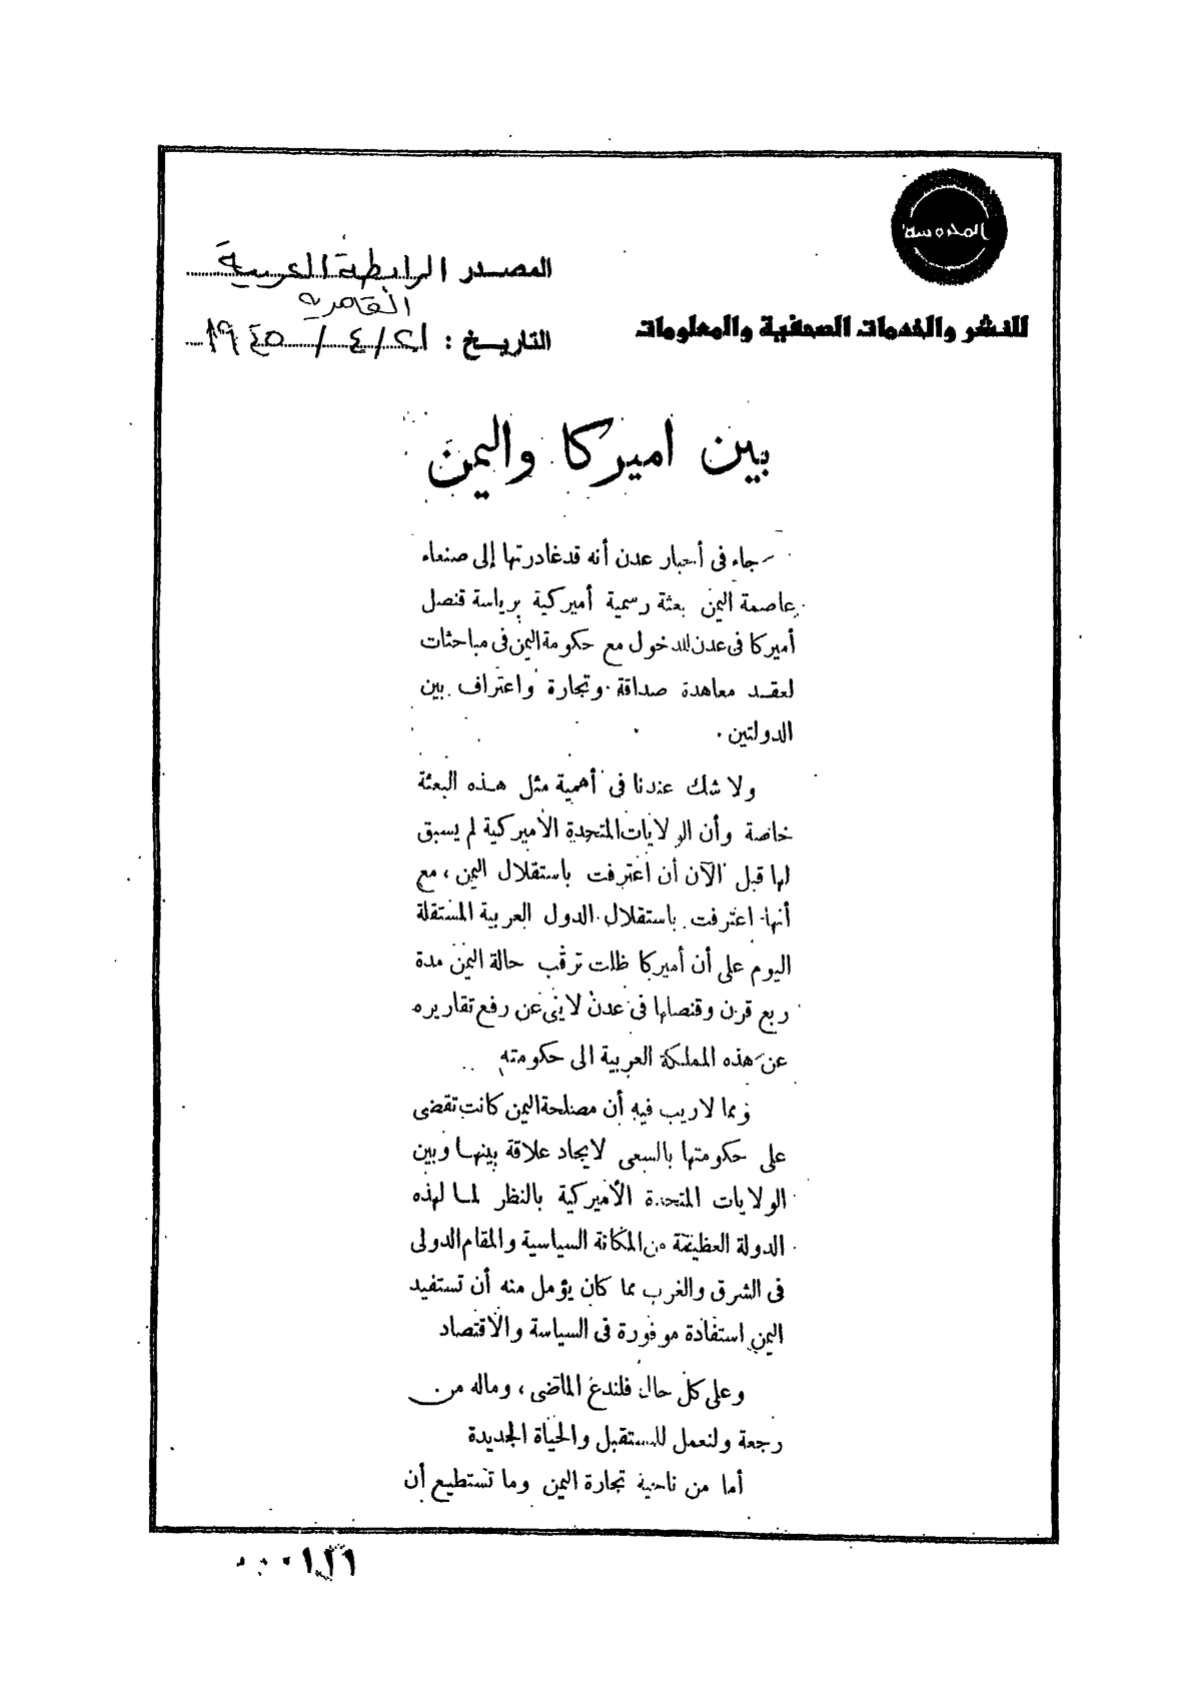 المحروسة
للنشر والخدمات الصحفية والمعلومات
المصدر الرابطة العربية
القاهرية
التاريخ : ٢١ / ٤ / ١٩٤٥
بين اميركا واليمن
جاء فى أخبار عدن أنه قد غادرتها إلى صنعاء
عاصمة اليمن بعثة رسمية أميركية برياسة قنصل
أميركا فى عدن للدخول مع حكومة اليمن فى مباحثات
لعقد معاهدة صداقة وتجارة واعتراف بين
الدولتين .
ولا شك عندنا فى أهمية مثل هذه البعثة
خاصة وأن الولايات المتحدة الأميركية لم يسبق
لها قبل الآن أن اعترفت باستقلال اليمن ، مع
أنها اعترفت باستقلال الدول العربية المستقلة
اليوم على أن أميركا ظلت ترقب حالة اليمن مدة
ربع قرن وقنصلها فى عدن لا ينى عن رفع تقاريره
عن هذه المملكة العربية الى حكومته
ومما لاريب فيه أن مصلحة اليمن كانت تقضى
على حكومتها بالسعى لايجاد علاقة بينها وبين
الولايات المتحدة الأميركية بالنظر لما لهذه
الدولة العظيمة من المكانة السياسية والمقام الدولى
فى الشرق والغرب مما كان يؤمل منه أن تستفيد
اليمن استفادة موفورة فى السياسة والاقتصاد
وعلى كل حال فلندع الماضى ، وماله من
رجعة ولنعمل للمستقبل والحياة الجديدة
أما من ناحية تجارة اليمن وما تستطيع أن